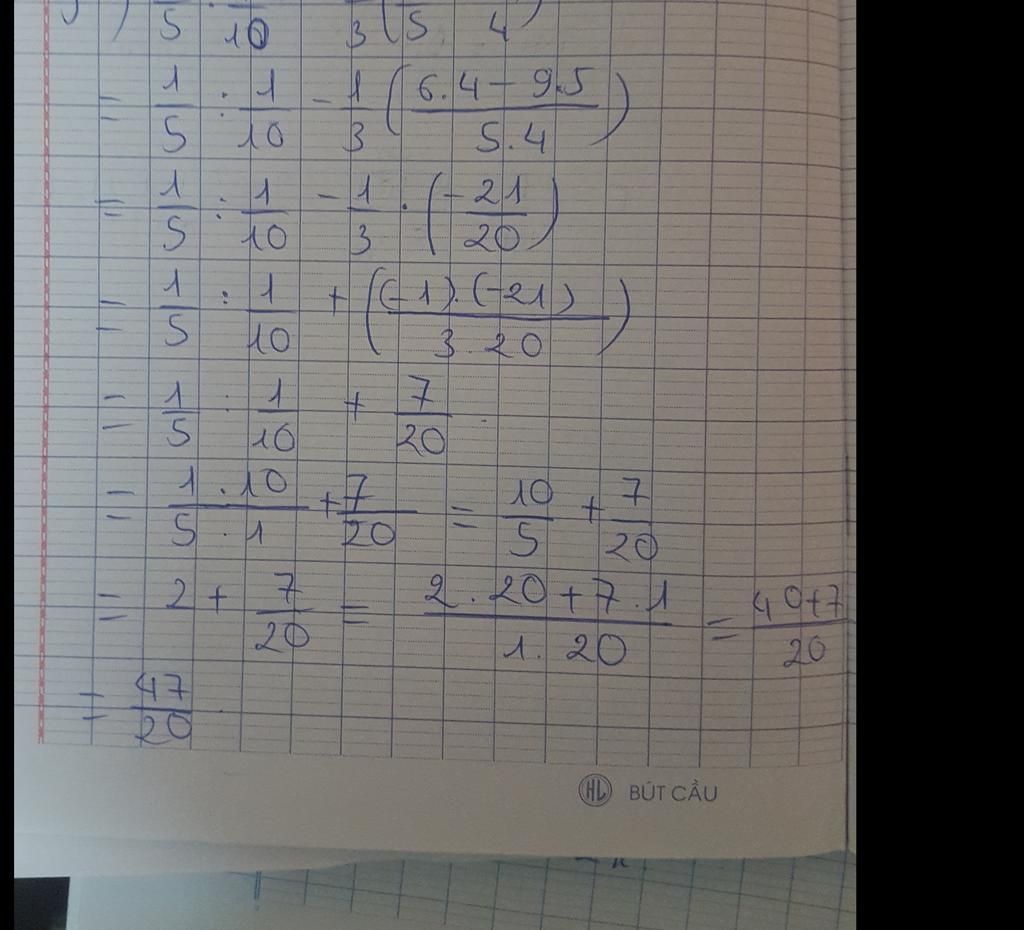 5 10 3 ( 5 4 )
= 1/5 : 1/10 - 1/3 ( (6.4 - 9.5)/(5.4) )
= 1/5 : 1/10 - 1/3 . ( -21/20 )
= 1/5 : 1/10 + ( ((-1).(-21))/(3.20) )
= 1/5 : 1/10 + 7/20
= (1.10)/(5.1) + 7/20 = 10/5 + 7/20
= 2 + 7/20 = (2.20+7.1)/(1.20) = (40+7)/20
= 47/20
HL BÚT CẦU